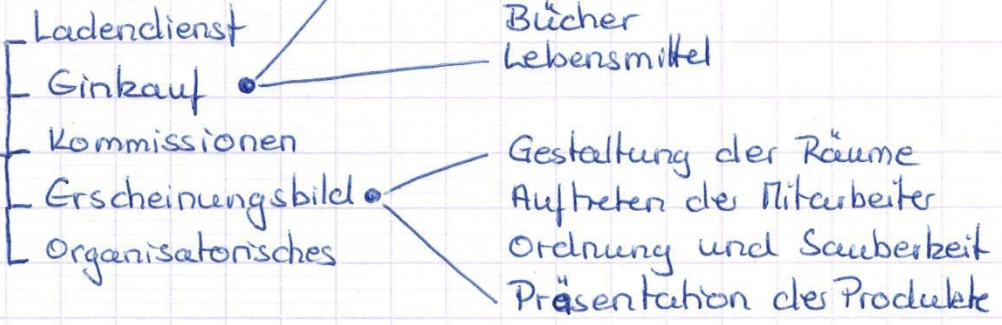 Ladendienst
Einkauf
Kommissionen
Erscheinungsbild
Organisatorisches
Bücher
Lebensmittel
Gestaltung der Räume
Auftreten der Mitarbeiter
Ordnung und Sauberkeit
Präsentation der Produkte